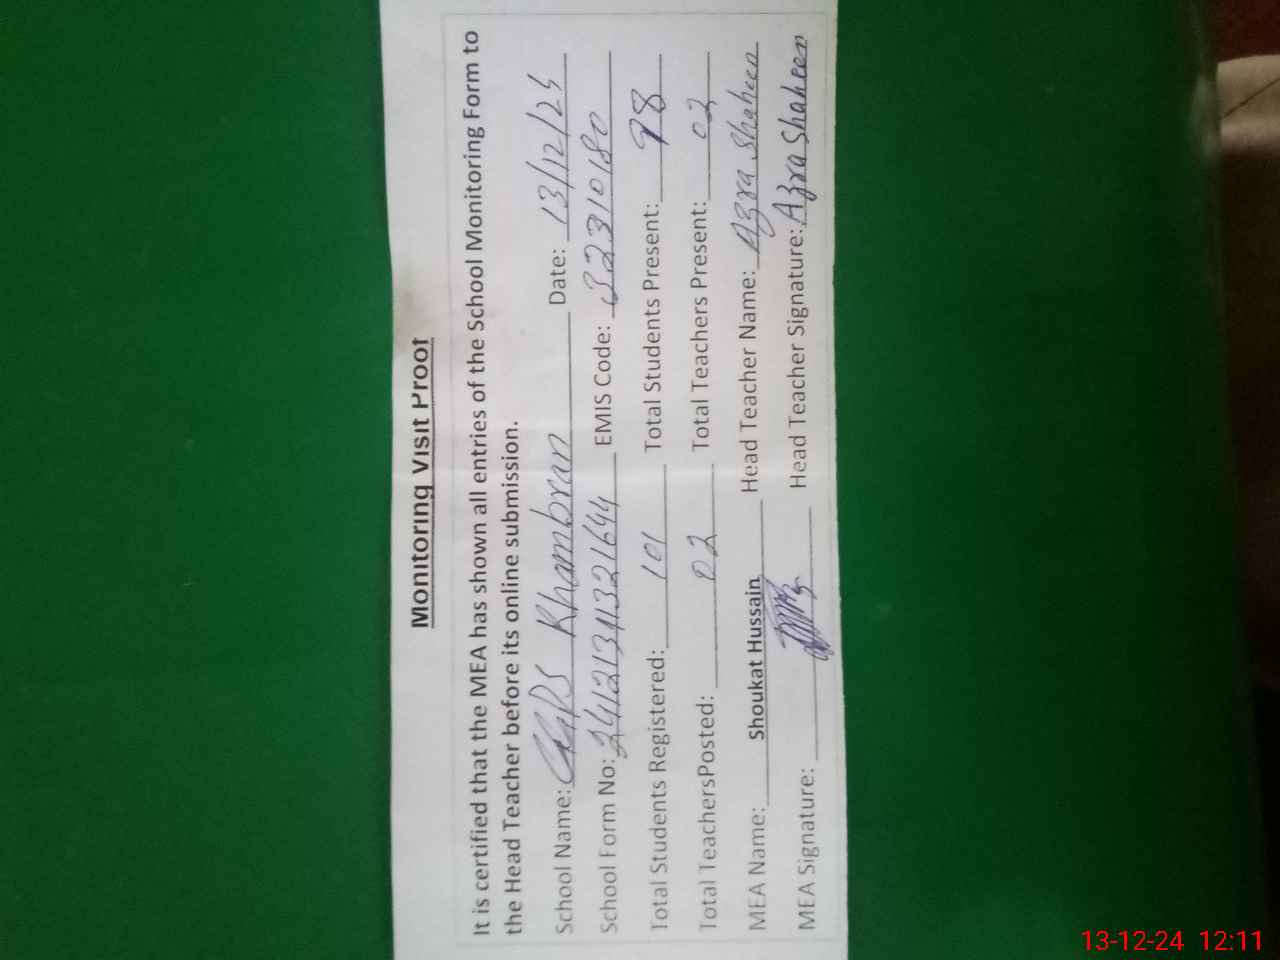 Monitoring Visit Proof
It is certified that the MEA has shown all entries of the School Monitoring Form to
the Head Teacher before its online submission.
School Name: GGPS Khambran Date: 13/12/24
School Form No: EMIS Code: 32310180
Total Students Registered: 101 Total Students Present: 98
Total TeachersPosted: 02 Total Teachers Present: 02
MEA Name: Shoukat Hussain Head Teacher Name: Azra Shaheen
MEA Signature: Head Teacher Signature: Azra Shaheen
13-12-24 12:11